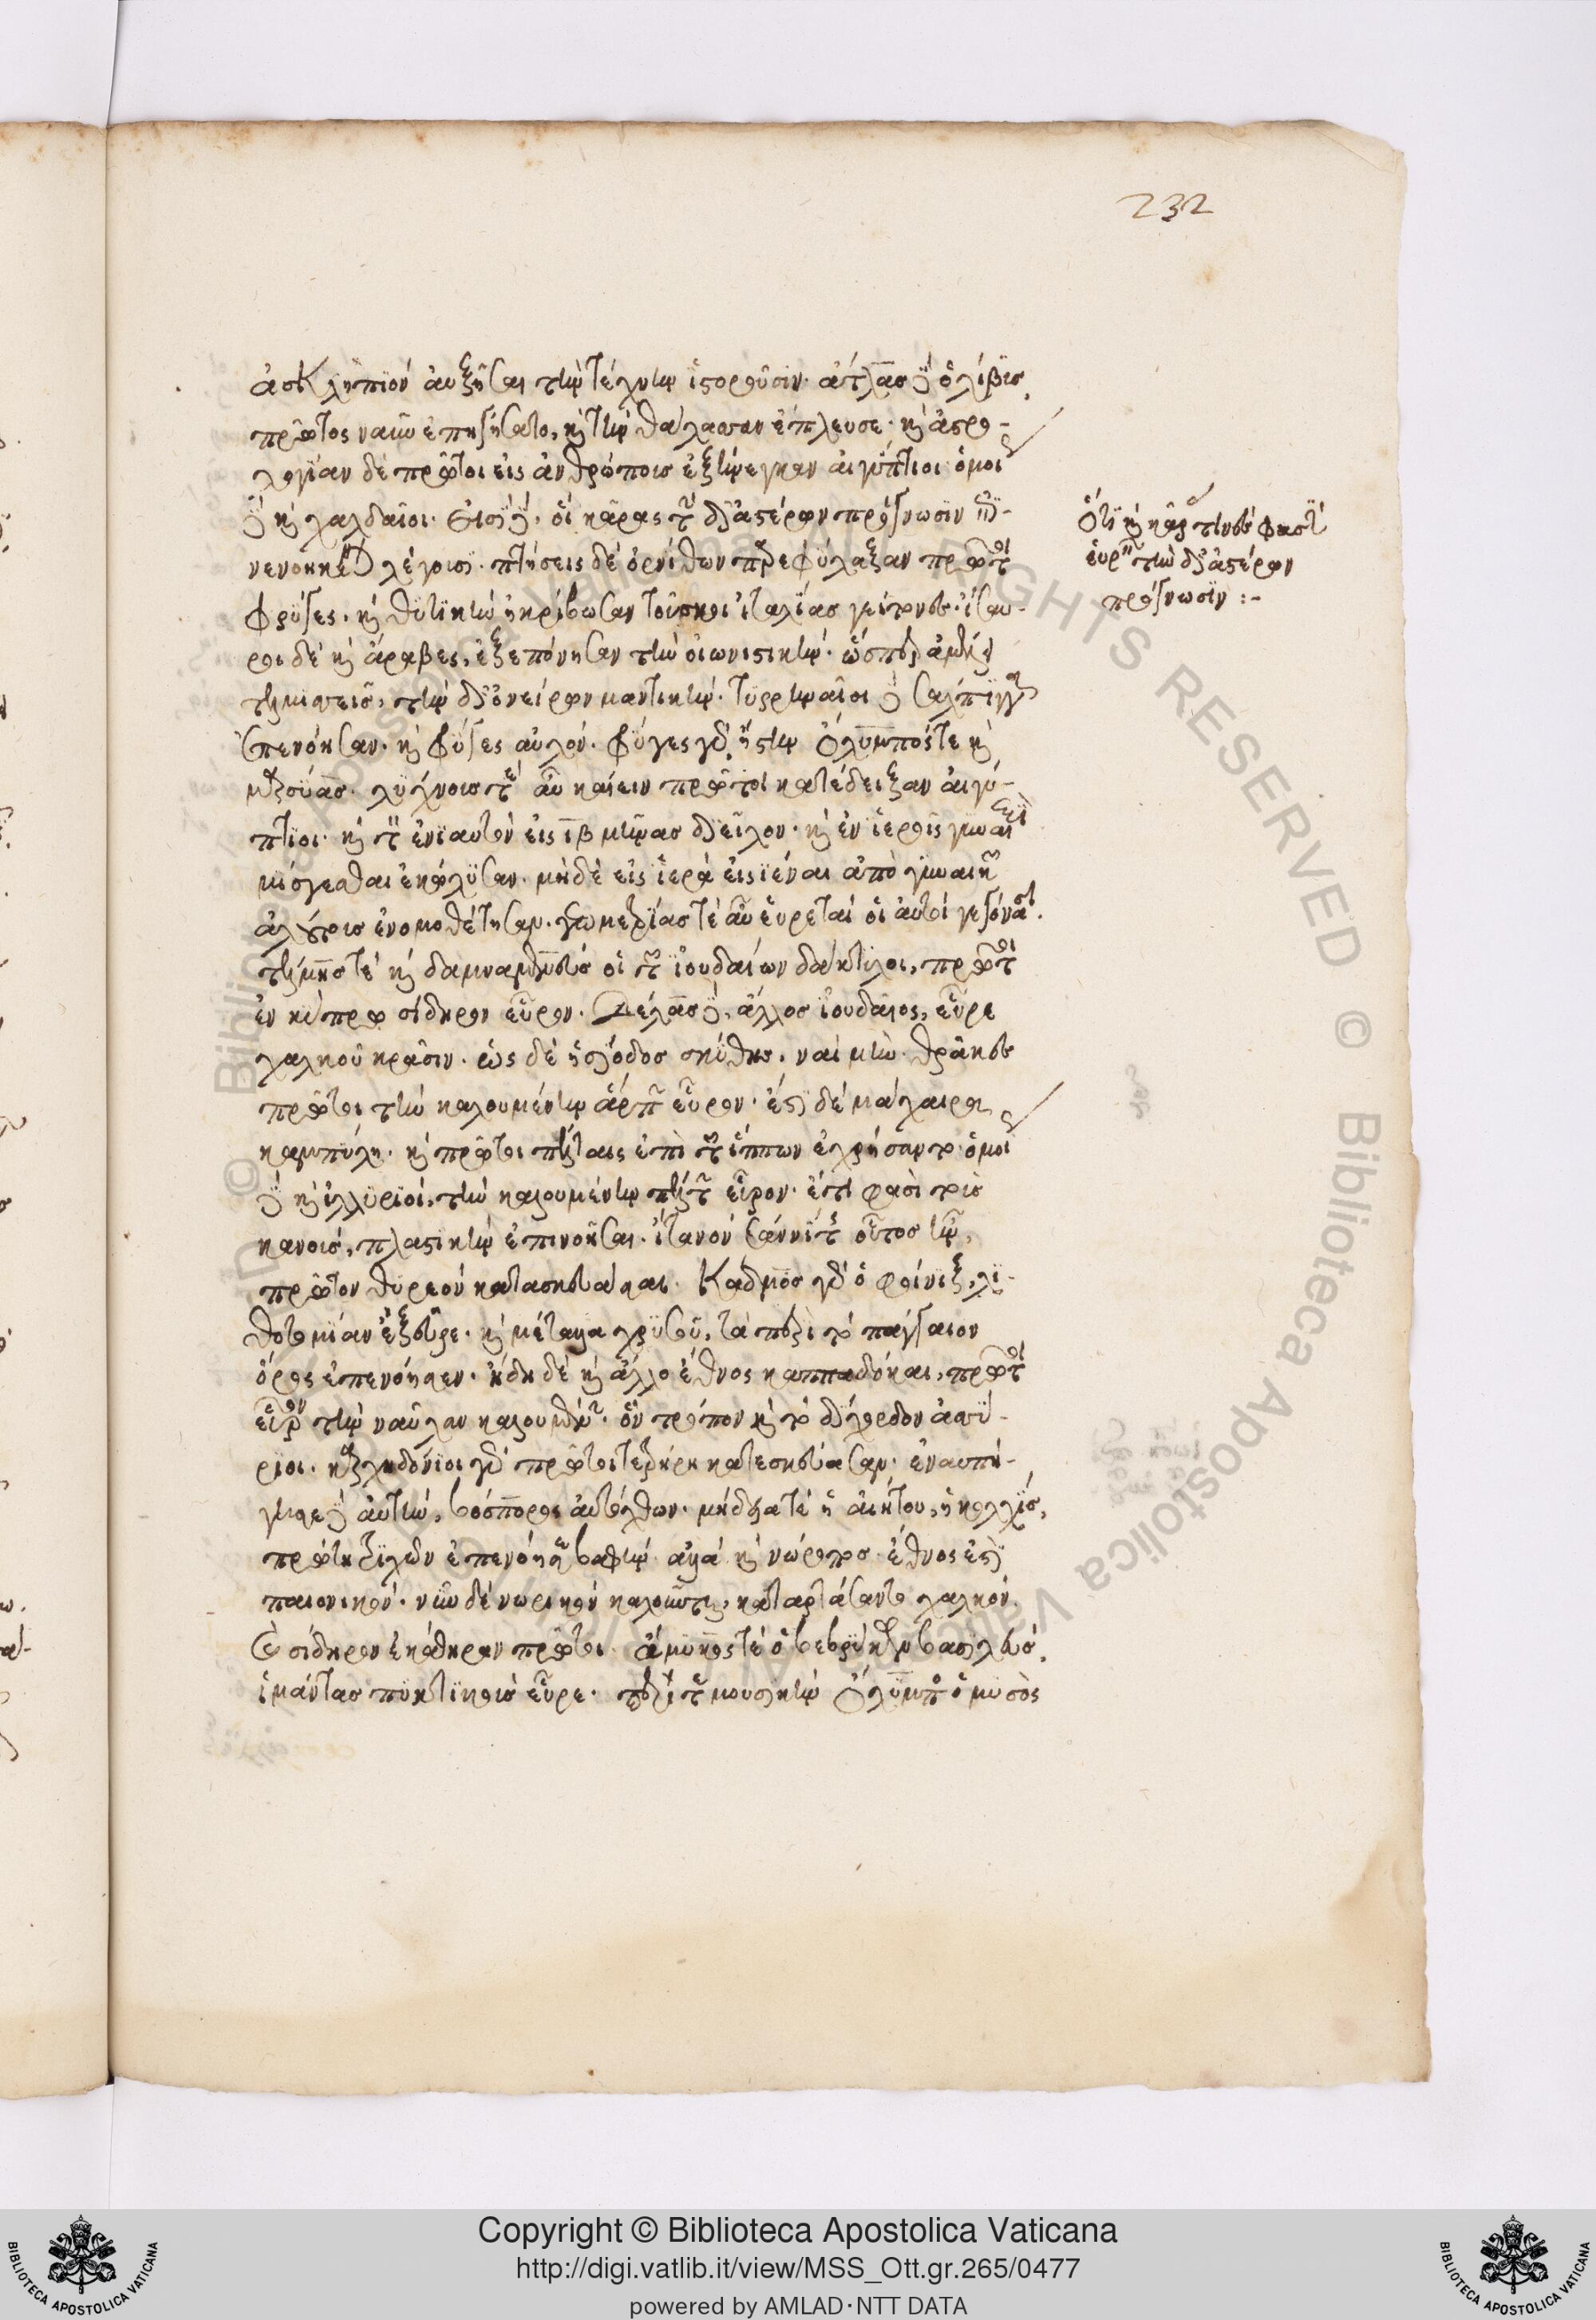 232
ἀσκληπιὸν αὐξῆσαι τὴν τέχνην ἱστοροῦσιν· ἄτλας δὲ ὁ λίβυς
πρῶτος ναῦν ἐπήξατο, καὶ τὴν θάλασσαν ἔπλευσε· καὶ ἀστρο-
λογίαν δὲ πρῶτοι εἰς ἀνθρώπους ἐξήνεγκαν αἰγύπτιοι· ὁμοί
δὲ καὶ χαλδαῖοι· εἰσὶ δὲ, οἳ κᾶρας τὴν δι' ἀστέρων πρόγνωσιν ἐπι-
νενοηκέναι λέγουσι· πτήσεις δὲ ὀρνίθων παρεφύλαξαν πρῶτοι
φρύγες· καὶ θυτικὴν ἠκρίβωσαν τοῦσκοι ἰταλίας γείτονες· ἴσαυ-
ροι δὲ καὶ ἄραβες, ἐξεπόνησαν τὴν οἰωνιστικήν· ὥσπερ ἀμέλει
τελμισεῖς, τὴν δι' ὀνείρων μαντικήν· τυρρηναῖοι δὲ σάλπιγγα
ἐπενόησαν· καὶ φρύγες αὐλόν· φρύγες γὰρ ἤστην ὄλυμπός τε καὶ
μαρσύας· λύχνους τε αὖ καίειν πρῶτοι κατέδειξαν αἰγύ-
πτιοι· καὶ τὸν ἐνιαυτὸν εἰς ιβ μῆνας διεῖλον· καὶ ἐν ἱεροῖς γυναιξὶ
μίσγεσθαι ἐκώλυσαν· μηδὲ εἰς ἱερὰ εἰσιέναι ἀπὸ γυναικῶν
ἀλούτοις ἐνομοθέτησαν· γεωμετρίας τε αὖ εὑρεταὶ οἱ αὐτοὶ γεγόνασι.
κέλμης τε καὶ δαμναμενεὺς οἱ τῶν ἰουδαίων δάκτυλοι, πρῶτοι
ἐν κύπρῳ σίδηρον εὗρον· δέλας δὲ, ἄλλος ἰουδαῖος, εὗρε
χαλκοῦ κρᾶσιν· ὡς δὲ ἡσίοδος σκύθης· ναὶ μὴν θρᾶκες
πρῶτοι τὴν καλουμένην ἅρπην εὗρον· ἔστι δὲ μάχαιρα
καμπύλη· καὶ πρῶτοι πέλταις ἐπὶ τῶν ἵππων ἐχρήσαντο· ὁμοί
δὲ καὶ ἰλλυριοὶ, τὴν καλουμένην πέλτην εὗρον· ἔτι φασὶ τοὺς
κανοὺς, πλαστικὴν ἐπινοῆσαι· ἰτανόν σαυνίτης οὗτος ἦν,
πρῶτον θυρεὸν κατασκευάσαι· κάδμος γὰρ ὁ φοίνιξ, λι-
θοτομίαν ἐξεῦρε· καὶ μέταλλα χρυσοῦ, τὰ περὶ τὸ παγγαῖον
ὄρος ἐπενόησεν· ἤδη δὲ καὶ ἄλλο ἔθνος καππαδόκαι, πρῶτοι
εὗρον τὴν ναῦλαν καλουμένην· ὃν τρόπον καὶ τὸ δίχορδον ἀσσύ-
ριοι· καρχηδόνιοι γὰρ πρῶτοι τετρήρη κατεσκεύασαν· ἐναυπή-
γησε δὲ αὐτὴν, βόσπορος αὐτόχθων· μήδεια τὲ ἡ αἰήτου, ἡ κολχὶς,
πρώτη τριχῶν ἐπενόησε βαφήν· ἀλλὰ καὶ νώροπες· ἔθνος ἐστὶ
παιονικόν· νῦν δὲ νωρικὸν καλοῦνται, κατειργάσαντο χαλκόν.
καὶ σίδηρον ἐκάθηραν πρῶτοι· ἄμυκός τε ὁ βεβρύκων βασιλεὺς,
ἱμάντας πυκτικοὺς εὗρε· περί τε μουσικὴν ὄλυμπος ὁ μυσὸς
ὅτι καὶ κᾶράς τινές φασι
εὑρεῖν τὴν δι' ἀστέρων
πρόγνωσιν :-
Copyright © Biblioteca Apostolica Vaticana
http://digi.vatlib.it/view/MSS_Ott.gr.265/0477
powered by AMLAD·NTT DATA
BIBLIOTECA APOSTOLICA VATICANA
BIBLIOTECA APOSTOLICA VATICANA